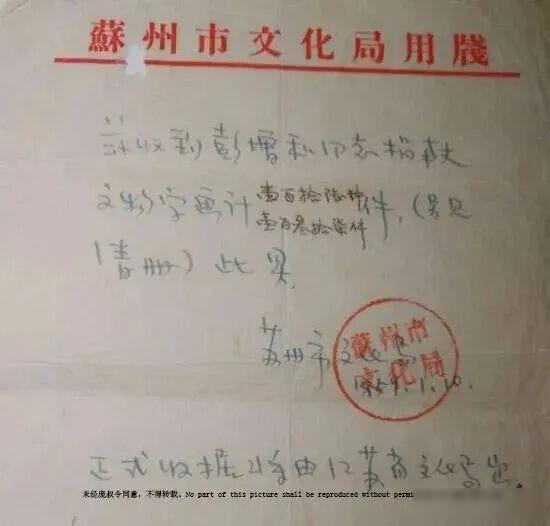 蘇州市文化局用牋
兹收到庞增和同志捐献
文物字画计壹百拾陆种
壹百叁拾柒件件,(另见
清册)此具.
苏州市文化局
蘇州市
文化局
1959.1.10.
正式收据将由江苏省文化局出
未经庞叔令同意,不得转载。No part of this picture shall be reproduced without permi